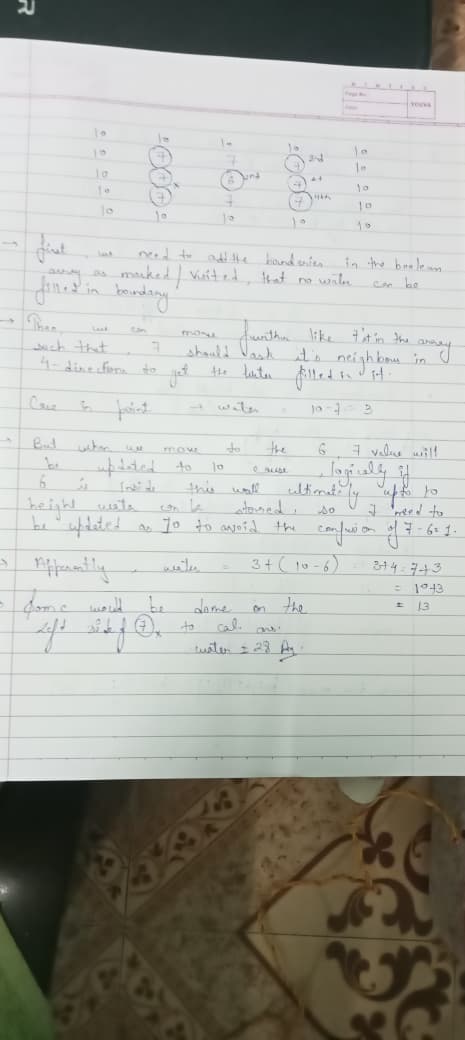 Page No.
Date
YOUVA
10 10 10 10 10
10 7 7 7 3rd 10
10 7 6 2nd 7 1st 10
10 7 x 7 7 4th 10
10 10 10 10 10
→ first, we need to add the boundaries in the boolean
array as marked / visited, that no water can be
filled in boundary
→ Then, we can move further like 7 1st in the array
such that, 7 should ask it's neighbour in
4-directions to get the water filled in it.
Case in point → water = 10-7 = 3
→ But when we move to the 6, 7 value will
be updated to 10 cause, logically if
6 is inside this wall ultimately upto 10
height water can be stored, so 7 need to
be updated as 10 to avoid the confusion of 7-6=1.
→ Apparently, water = 3+(10-6) = 3+4=7+3
= 10+3
= 13
Same would be done on the
left side of 7 x to cal. ans.
water = 28 Ans.